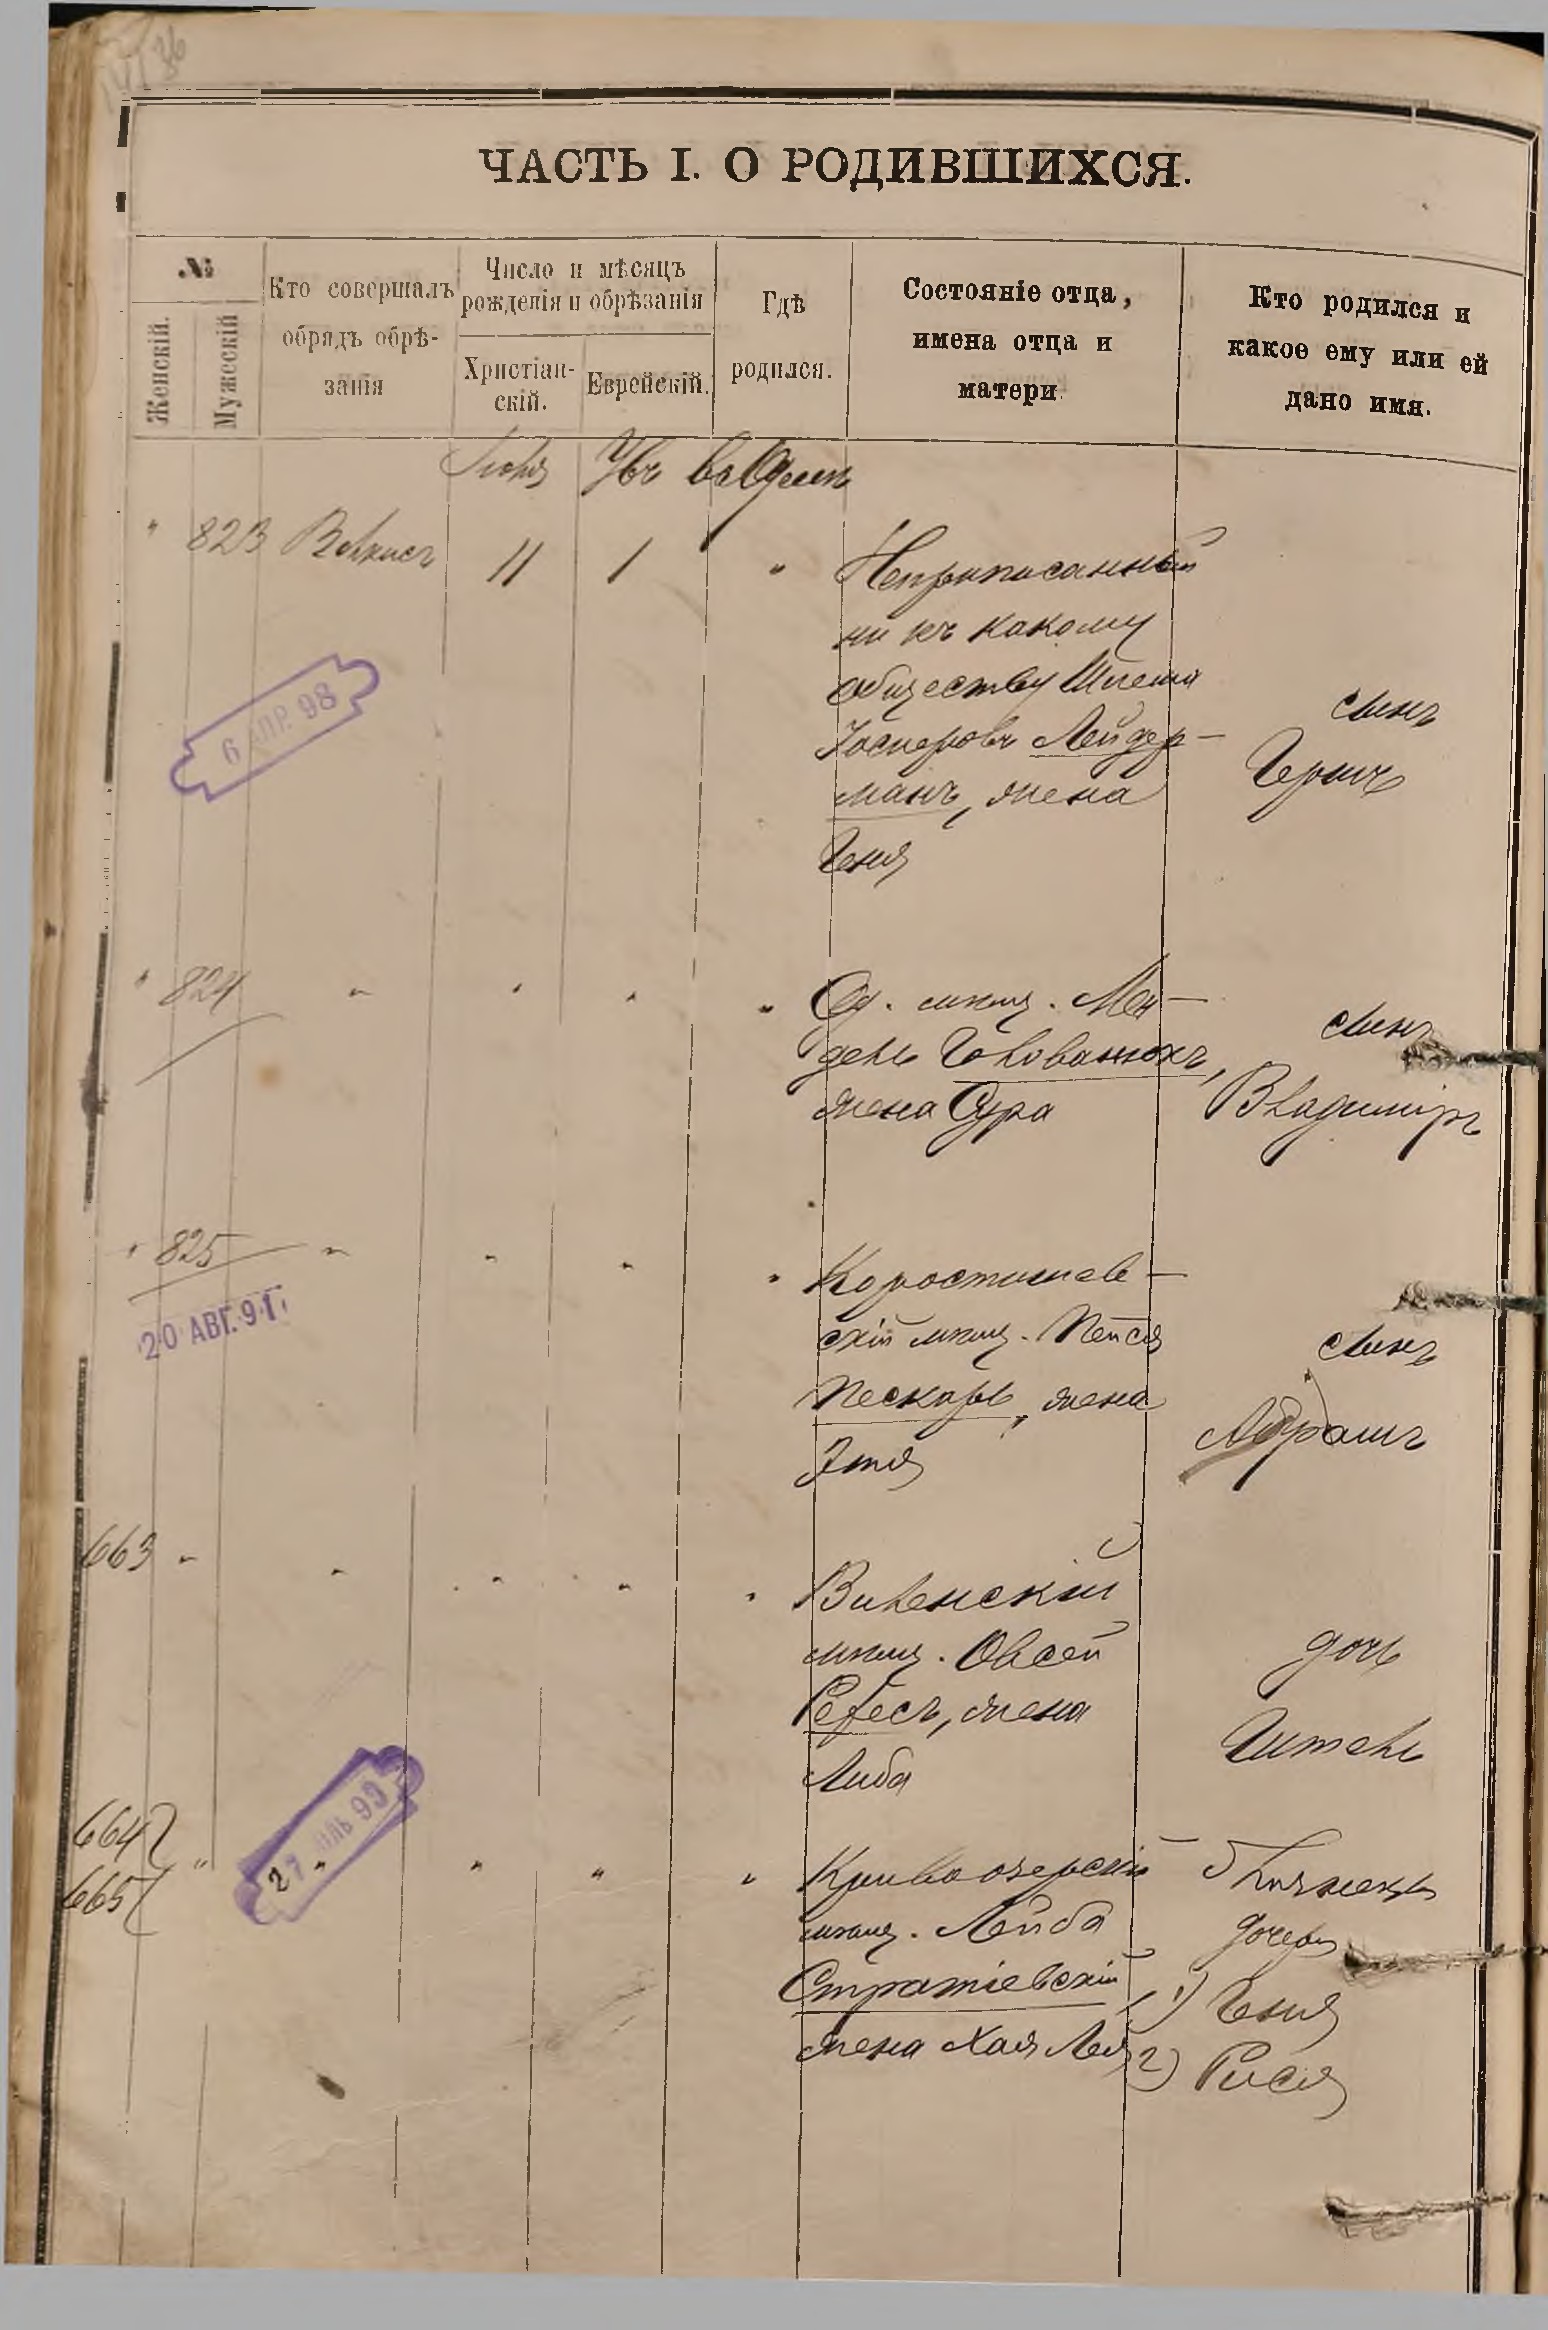 ЧАСТЬ I. О РОДИВШИХСЯ.
№
Женскій.
Мужескій
Кто совершалъ
обрядъ обрѣ-
занія
Число и мѣсяцъ
рожденія и обрѣзанія
Христіан-
скій.
Еврейскій.
Гдѣ
родился.
Состояніе отца,
имена отца и
матери
Кто родился и
какое ему или ей
дано имя.
въ Одессѣ
" 823 11 1 "
Неприписанный
ни къ какому
обществу
Лейдер-
манъ, жена
Геня
сынъ
Гершъ
6 АПР. 98
" 824 " " " "
Од. мѣщ. Мен-
дель Голованюкъ,
жена Сура
сынъ
Владиміръ
" 825 " " " "
20 АВГ. 91
Коростышев-
скій мѣщ. Пейся
Пескарь, жена
Этя
сынъ
Абрамъ
663 " " " " "
Виленскій
мѣщ. Овсей
Ребесъ, жена
Либа
дочь
Гитель
664
665 " " " " "
27 99
Кривоозерскій
мѣщ. Лейба
Стратіевскій
жена Хая Лея
Близнецы
дочери
1) Геня
2) Рися